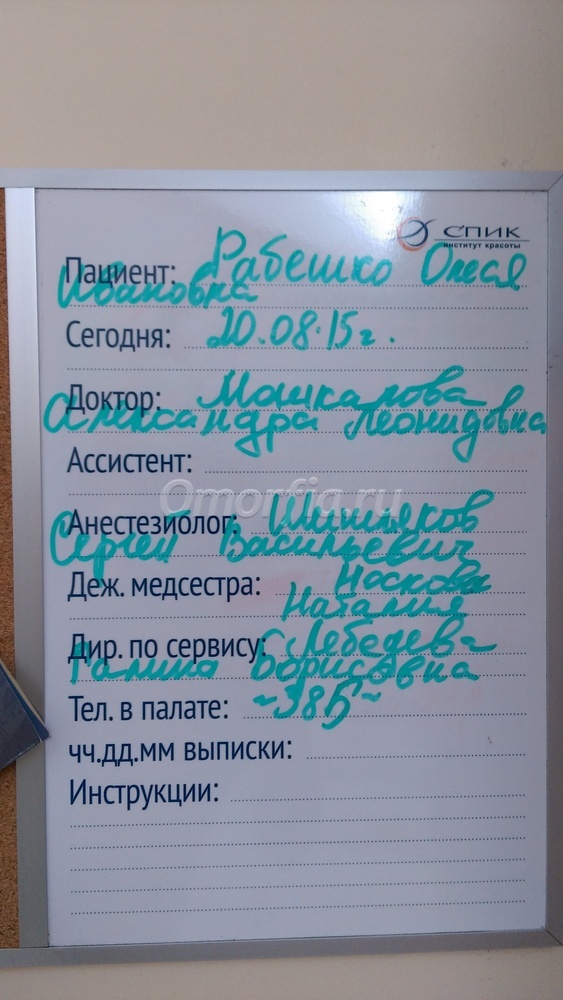 СПИК
институт красоты
Пациент: Рабешко Олеся
Ивановна
Сегодня: 20.08.15г.
Доктор: Машкалова
Александра Леонидовна
Ассистент:
Omorfia.ru
Анестезиолог: Шишляков
Сергей Васильевич
Деж. медсестра: Носкова
Наталия
Дир. по сервису: Лебедева
Галина Борисовна
Тел. в палате: ~385~
чч.дд.мм выписки:
Инструкции: